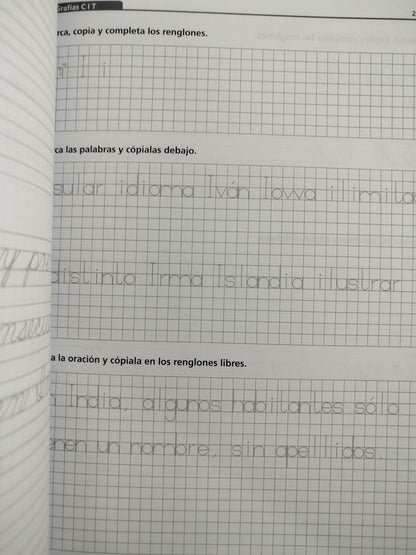 Grafías C I T
2
rca, copia y completa los renglones.
I i
ca las palabras y cópialas debajo.
sular idioma Iván Iowa ilimita
distinto Irma Islandia ilustrar
a la oración y cópiala en los renglones libres.
n India, algunos habitantes sólo
enen un nombre, sin apellidos.